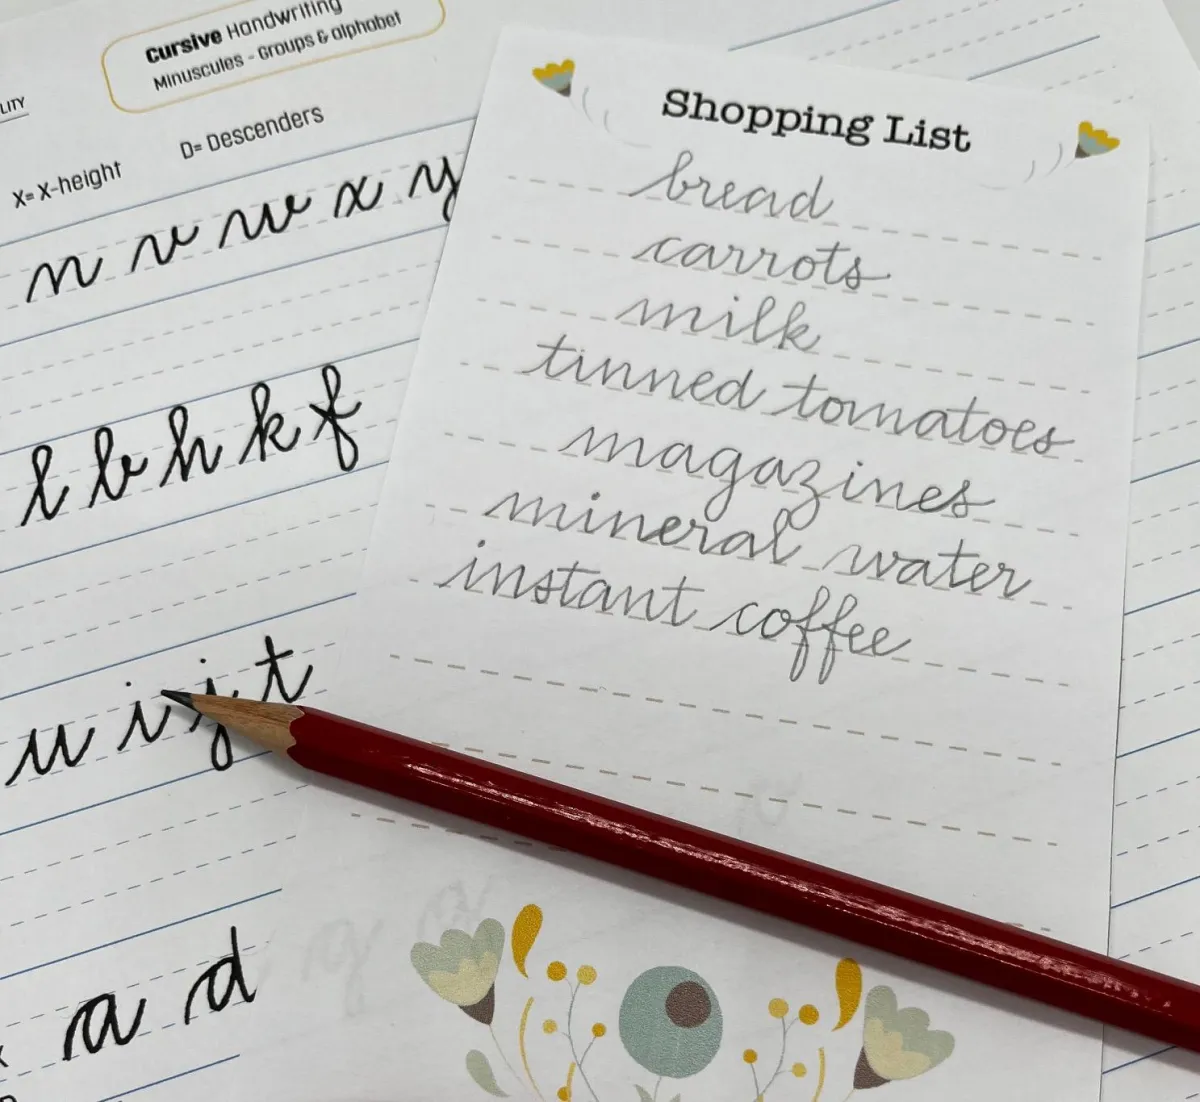 Cursive Handwriting
Minuscules - Groups & alphabet
LITY
X= X-height
D= Descenders
n v w x y
l b h k f
u i j t
a d
Shopping List
bread
carrots
milk
tinned tomatoes
magazines
mineral water
instant coffee